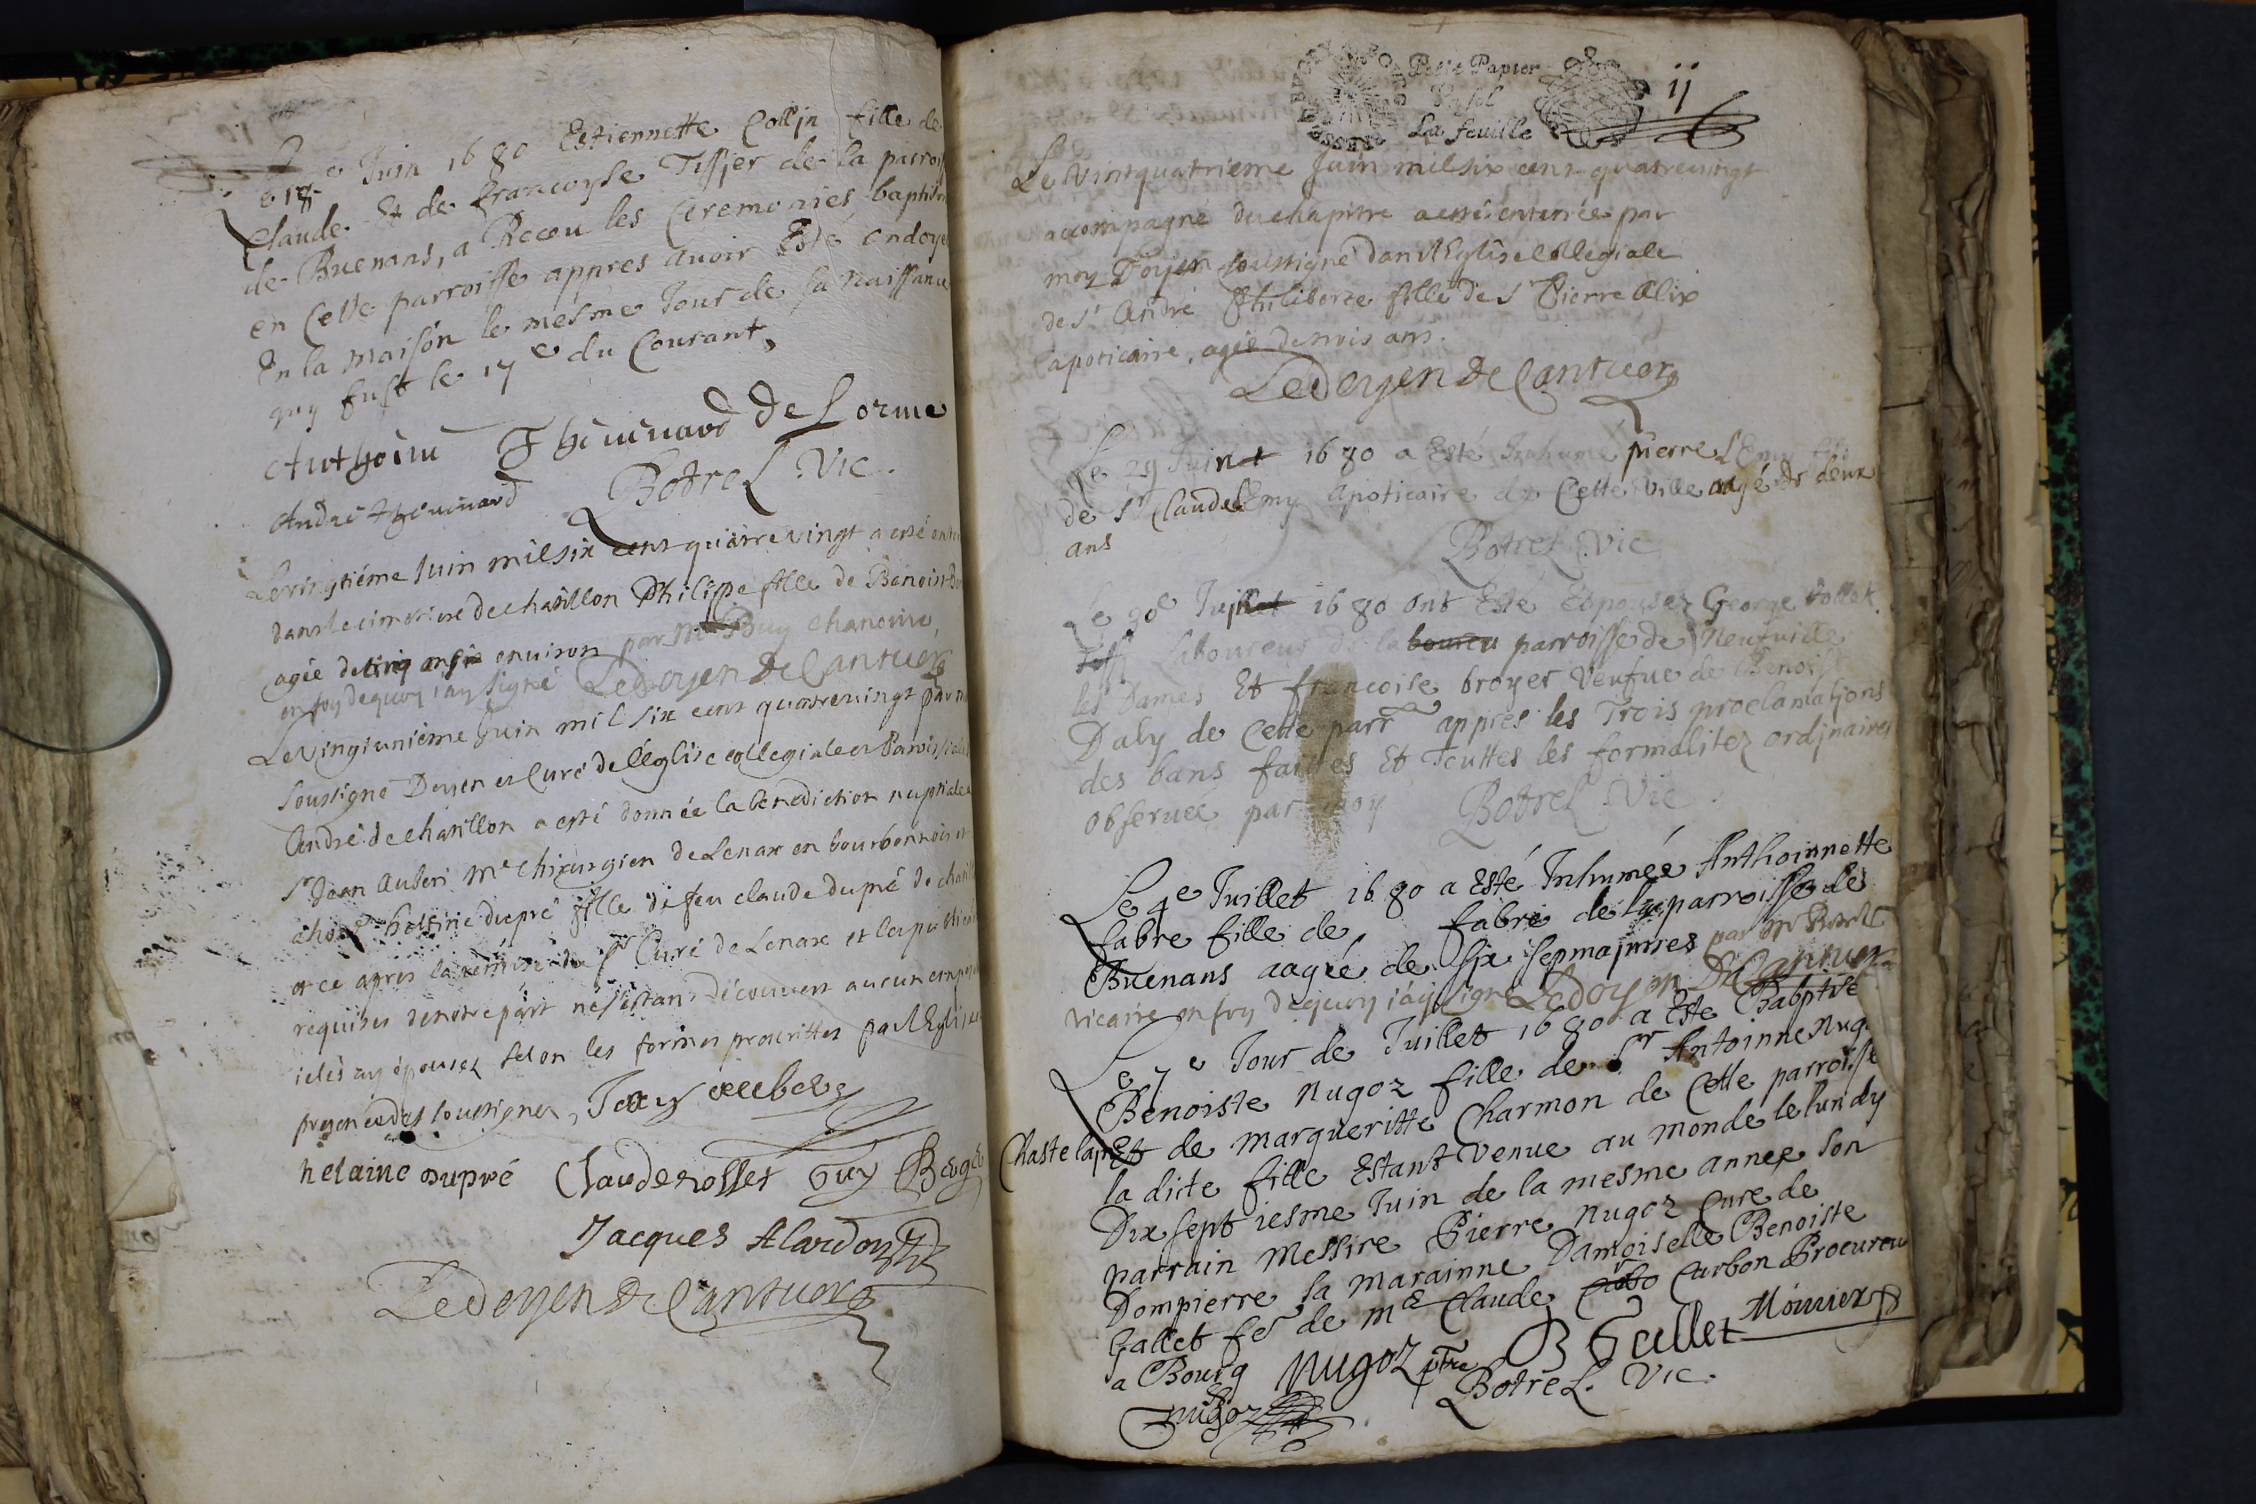 Juin 1680 Estiennette Collin fille de
Claude Et de francoyse Tissier de la parroisse
de Buenans, a Receu les Ceremonies baptism
en Cette parroisse appres avoir Esté ondoyé
En la maison le mesme Jour de sa Naissance
quy fust le 17e du Courant
Anthoine Thevenard De Lorme
André thevenard Botrel Vic.
Le vingtiéme Juin mil six cent quatre vingt a esté
dans le cimetiere de chatillon Philippe fille de Benoist
agée de cinq ans environ par Mre Buy chanoine,
en foy dequoy i'ay signé Le doyen De Cantuer
Le vingtunième Juin mil six cent quatrevingt par
soussigné Doyen et Curé de l'église collegiale et Paroissiale
André de chatillon a esté donnée la benediction nuptiale a
Sr Jean Aubert Me chirurgien de Lenax en bourbonnois et
a ho fille de feu claude dupré de chatill
et ce après la remise du Sr Curé de Lenax et les
requises de notre part ne s'estant découvert aucun
iceles ay épousez selon les formes prescrittes par l'Eglise
presence des soussignez,
helaine dupré Claude rosset Guy
Jacques Alardon
Le doyen De Cantuer
Petit Papier
La feuille
ij
Le vintquatrième Juin mil six cent quatrevingt
accompagné du chapitre a esté enterrée par
moy Doyen soussigné dans l'Eglise collegiale
de St André Philiberte fille de Sr Pierre Alix
apoticaire, agée de trois ans.
Le doyen De Cantuer
Le 29 Juin 1680 a Esté Inhumé pierre LEmy fils
de Sr Claude LEmy Apoticaire de Cette Ville aagé de deux
ans Botrel Vic
Le 30e Jui 1680 ont Esté Espousez George
Laboureur de la parroisse de Neufville
les Dames Et francoise broyer Veufve de Benoist
Daly de Cette parr appres les Trois proclamations
des bans faittes Et Touttes les formalitez ordjnaires
observée par moy Botrel Vic.
Le 4e Juillet 1680 a Esté Inhumée Anthoinnette
fabre fille de fabre de la parroisse de
Buenans aagée de six sepmajnnes par Mr Botrel
vicaire en foy dequoy i'ay signé Le doyen De Cantuer
Le 7e Jour de Juillet 1680 a Este Babptise
Benoiste Nugoz fille de Sr Antoinne Nugoz
Chastelajn Et de margueritte Charmon de Cette parroisse
la dicte fille Estant Venue au monde le lundy
Dix sept iesme Juin de la mesme annee son
parrain Messire Pierre Nugoz Cure de
Dompierre la marainne Damoiselle Benoiste
Gallet fe de me Claude Carbon Procureur
a Bourg Nugoz ptre B Gallet Monier
Nugoz Botrel. Vic.